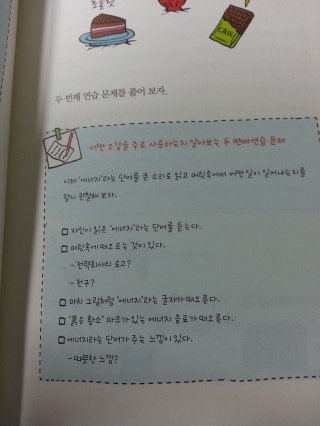 초콜릿
CACAO
두 번째 연습 문제를 풀어 보자.
어떤 오감을 주로 사용하는지 알아보는 두 번째 연습 문제
이제 '에너지'라는 단어를 큰 소리로 읽고 머릿속에서 어떤 일이 일어나는지를
잠시 관찰해 보자.
□ 자신이 읽은 '에너지'라는 단어를 듣는다.
□ 머릿속에 떠오르는 것이 있다.
- 전력회사의 로고?
- 전구?
□ 마치 그림처럼 '에너지'라는 글자가 떠오른다.
□ '붉은 황소' 마크가 있는 에너지 음료가 떠오른다.
□ 에너지라는 단어가 주는 느낌이 있다.
- 따뜻한 느낌?